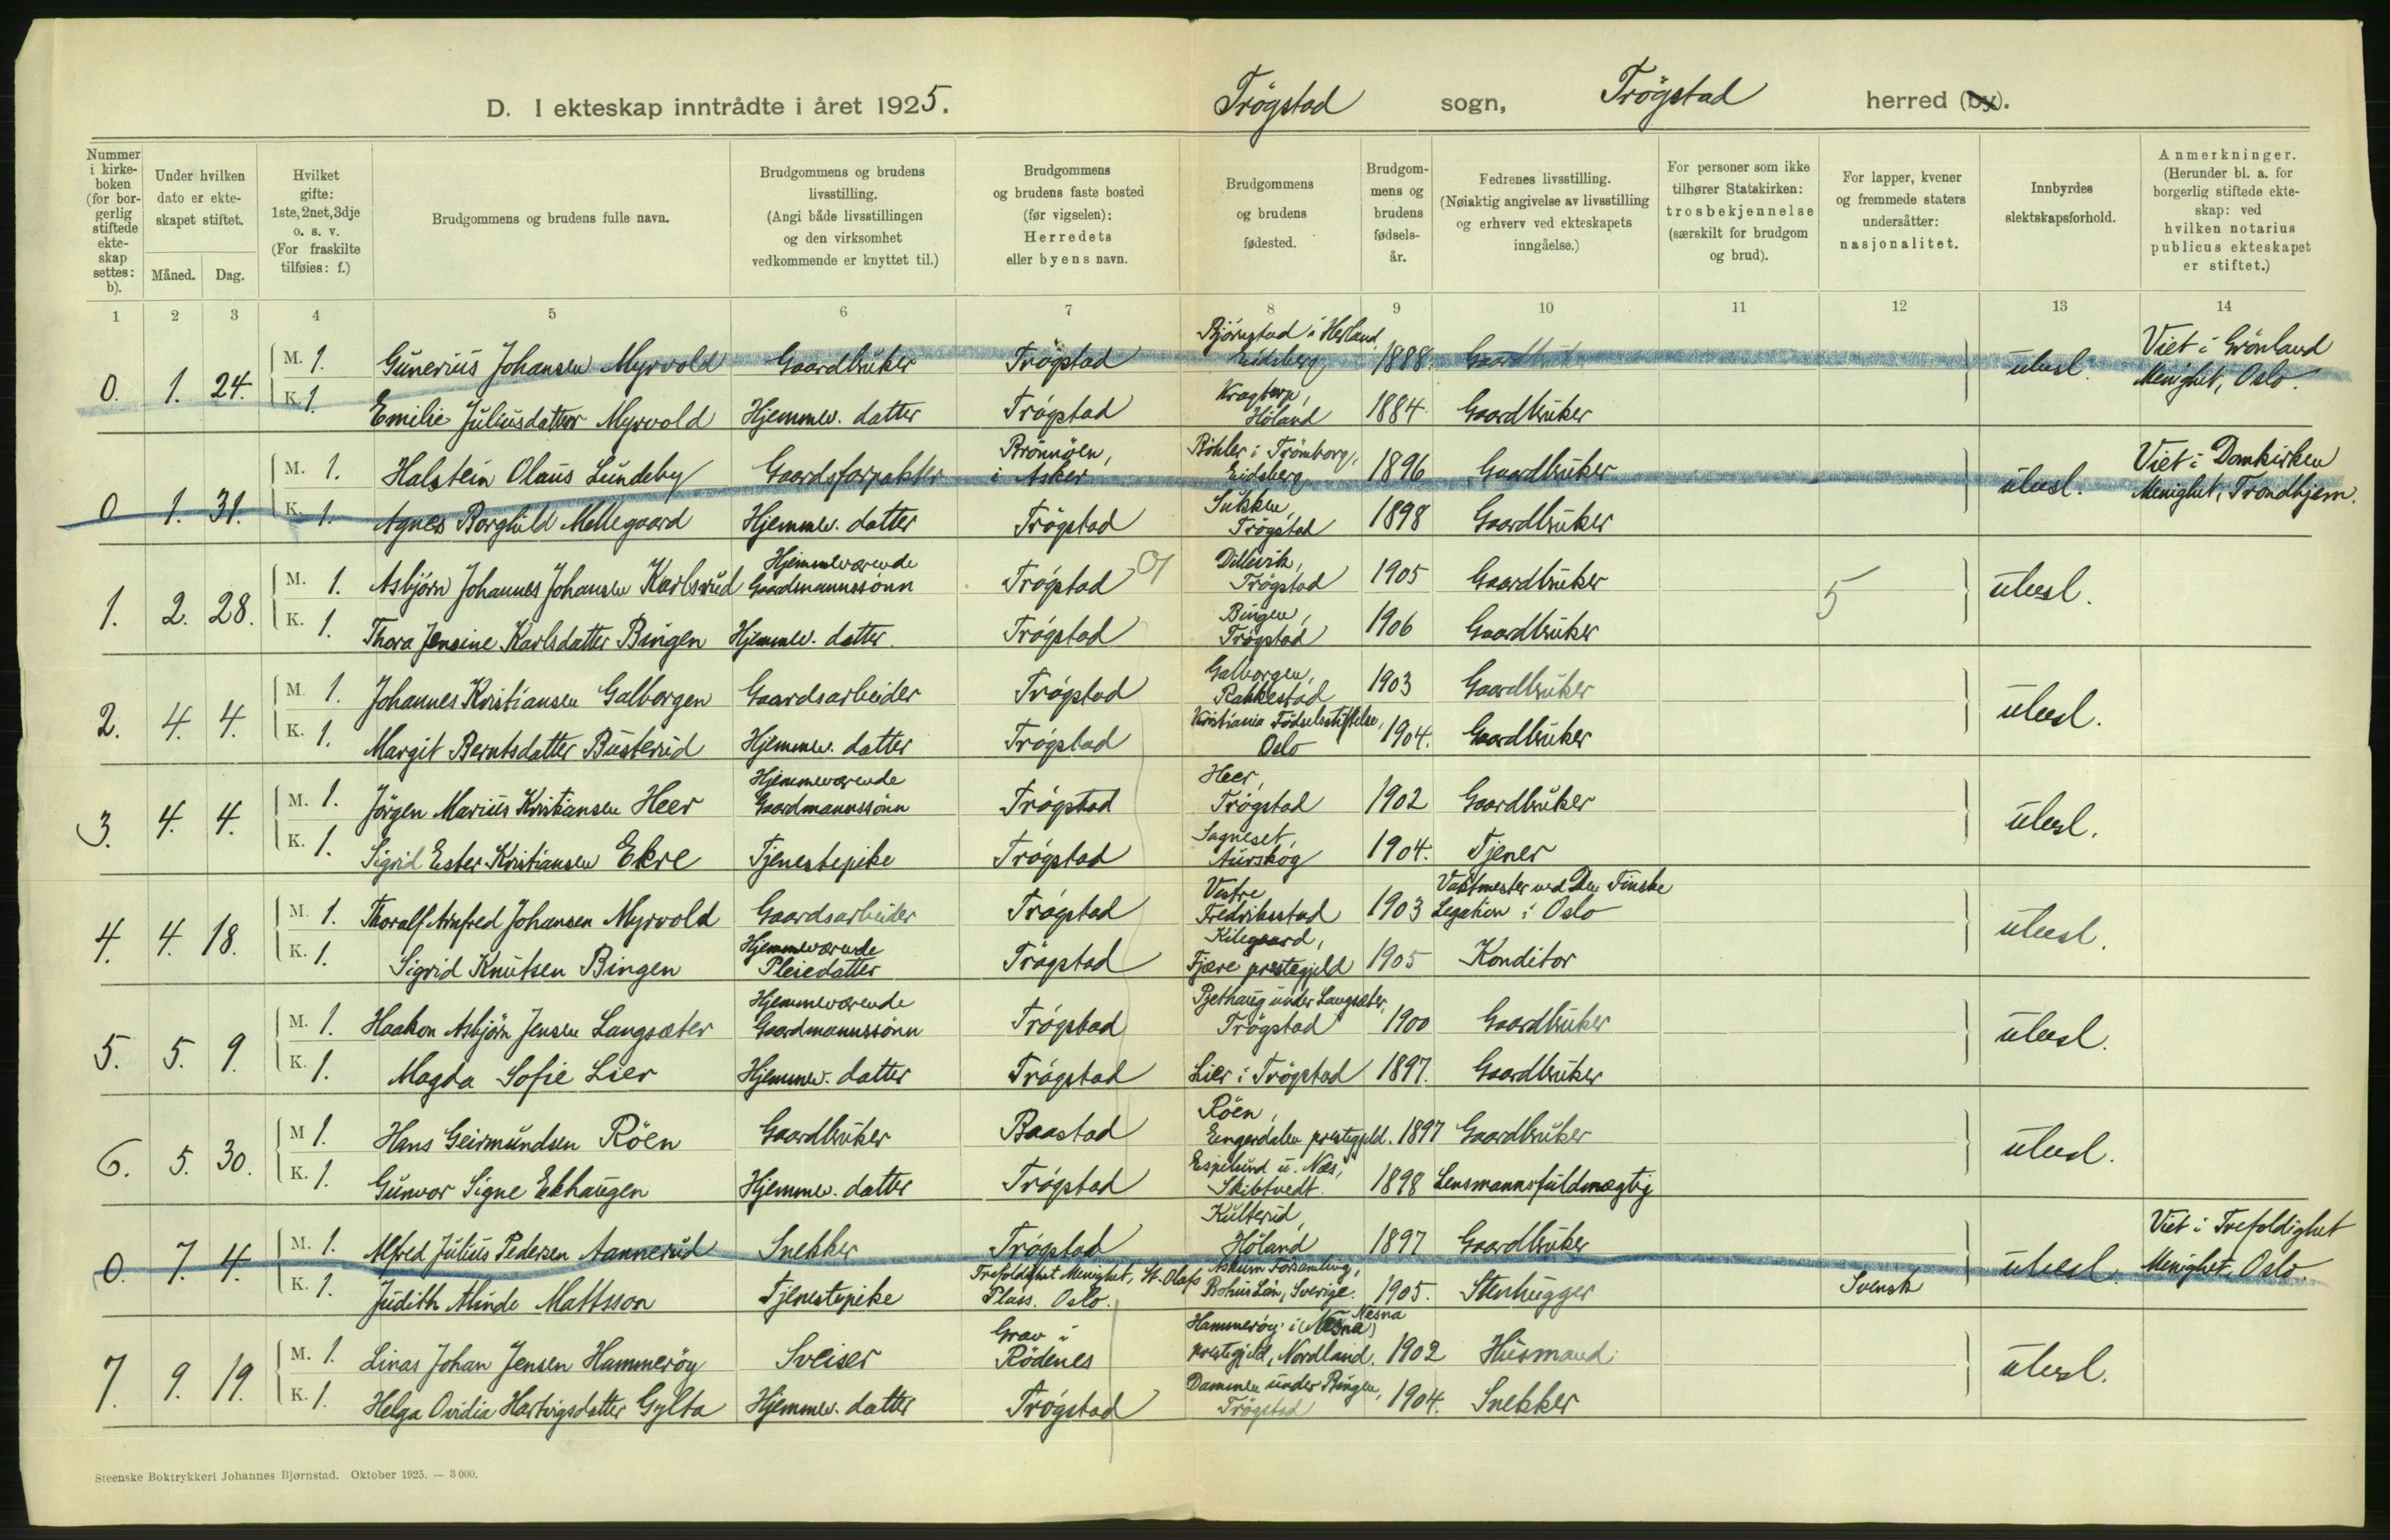 D. I ekteskap inntrådte i året 1925. Trögstad sogn, Trögstad herred (by).
Nummer i kirke-boken (for bor-gerlig stiftede ekte-skap settes: b).
Under hvilken dato er ekte-skapet stiftet.
Måned. Dag.
Hvilket gifte: 1ste, 2net, 3dje o. s. v. (For fraskilte tilføies: f.)
Brudgommens og brudens fulle navn.
Brudgommens og brudens livsstilling. (Angi både livsstillingen og den virksomhet vedkommende er knyttet til.)
Brudgommens og brudens faste bosted (før vigselen): Herredets eller byens navn.
Brudgommens og brudens fødested.
Brudgom-mens og brudens fødsels-år.
Fedrenes livsstilling. (Nøiaktig angivelse av livsstilling og erhverv ved ekteskapets inngåelse.)
For personer som ikke tilhører Statskirken: trosbekjennelse (særskilt for brudgom og brud).
For lapper, kvener og fremmede staters undersåtter: nasjonalitet.
Innbyrdes slektskapsforhold.
Anmerkninger. (Herunder bl. a. for borgerlig stiftede ekte-skap: ved hvilken notarius publicus ekteskapet er stiftet.)
1 2 3 4 5 6 7 8 9 10 11 12 13 14
0. 1. 24. M. 1. Gunerius Johansen Myrvold Gaardbruker Trögstad Björnstad i Herland, Eidsberg 1888. Gaardbruker ubesl. Viet i Grönland Menighet, Oslo.
K. 1. Emilie Juliusdatter Myrvold Hjemmev. datter Trögstad Kragtorp, Höland 1884. Gaardbruker
0 1. 31. M. 1. Halstein Olaus Lundeby Gaardsforpakter Brönnöen, i Asker Böhler i Trömborg, Eidsberg 1896 Gaardbruker ubesl. Viet i Domkirken Menighet, Trondhjem.
K. 1. Agnes Borghild Mellegaard Hjemmev. datter Trögstad Sukken, Trögstad 1898 Gaardbruker
1. 2. 28. M. 1. Asbjörn Johannes Johansen Karlsrud Hjemmeværende Gaardmannssönn Trögstad Dillevik, Trögstad 1905 Gaardbruker 5 ubesl.
K. 1. Thora Jensine Karlsdatter Bingen Hjemmev. datter. Trögstad Bingen, Trögstad 1906 Gaardbruker
2. 4. 4. M. 1. Johannes Kristiansen Galborgen Gaardsarbeider Trögstad Galborgen, Rakkestad 1903 Gaardbruker ubesl.
K. 1. Margit Berntsdatter Busterud Hjemmev. datter Trögstad Kristiania Födselsstiftelse, Oslo 1904. Gaardbruker
3. 4. 4. M. 1. Jörgen Marius Kristiansen Heer Hjemmeværende Gaardmannssönn Trögstad Heer, Trögstad 1902 Gaardbruker ubesl.
K. 1. Sigrid Ester Kristiansen Ekre Tjenestepike Trögstad Sagneset, Aurskog 1904. Tjener
4. 4. 18. M. 1. Thoralf Arnfred Johansen Myrvold Gaardsarbeider Trögstad Vestre Fredriksstad 1903 Vaktmester ved Den Finske Legation i Oslo ubesl.
K. 1. Sigrid Knutsen Bingen Hjemmeværende Pleiedatter Trögstad Kilegaard, Fjære prestegjeld 1905 Konditor
5. 5. 9. M. 1. Haakon Asbjörn Jensen Langsæter Hjemmeværende Gaardmannssönn Trögstad under Langsæter, Trögstad 1900 Gaardbruker ubesl.
K. 1. Magda Sofie Lier Hjemmev. datter Trögstad Lier i Trögstad 1897. Gaardbruker
6. 5. 30. M 1. Hans Geirmundsen Röen Gaardbruker Baastad Röen, Engerdalen prestegjeld. 1897 Gaardbruker ubesl.
K. 1. Gunvor Signe Ekhaugen Hjemmev. datter Trögstad Espelund u. Næs, Skibtvedt. 1898 Lensmannsfuldmægtig
0. 7. 4. M. 1. Alfred Julius Pedersen Aannerud Snekker Trögstad Kulterud, Höland 1897 Gaardbruker ubesl. Viet i Trefoldighet Menighet, Oslo.
K. 1. Judith Alinde Mattsson Tjenestepike Trefoldighet Menighet, St. Olafs Plass. Oslo. Askum Församling, Bohus Län, Sverige. 1905. Stenhugger Svensk
7. 9. 19. M. 1. Linas Johan Jensen Hammeröy Sveiser Grav i Rödenes Hammeröy i (Nesna) Nesna prestegjeld, Nordland. 1902 Husmand. ubesl.
K. 1. Helga Ovidia Hartvigsdatter Gylta Hjemmev. datter Trögstad Dammen under Bingen, Trögstad 1904. Snekker
Steenske Boktrykkeri Johannes Bjørnstad. Oktober 1925. — 3 000.